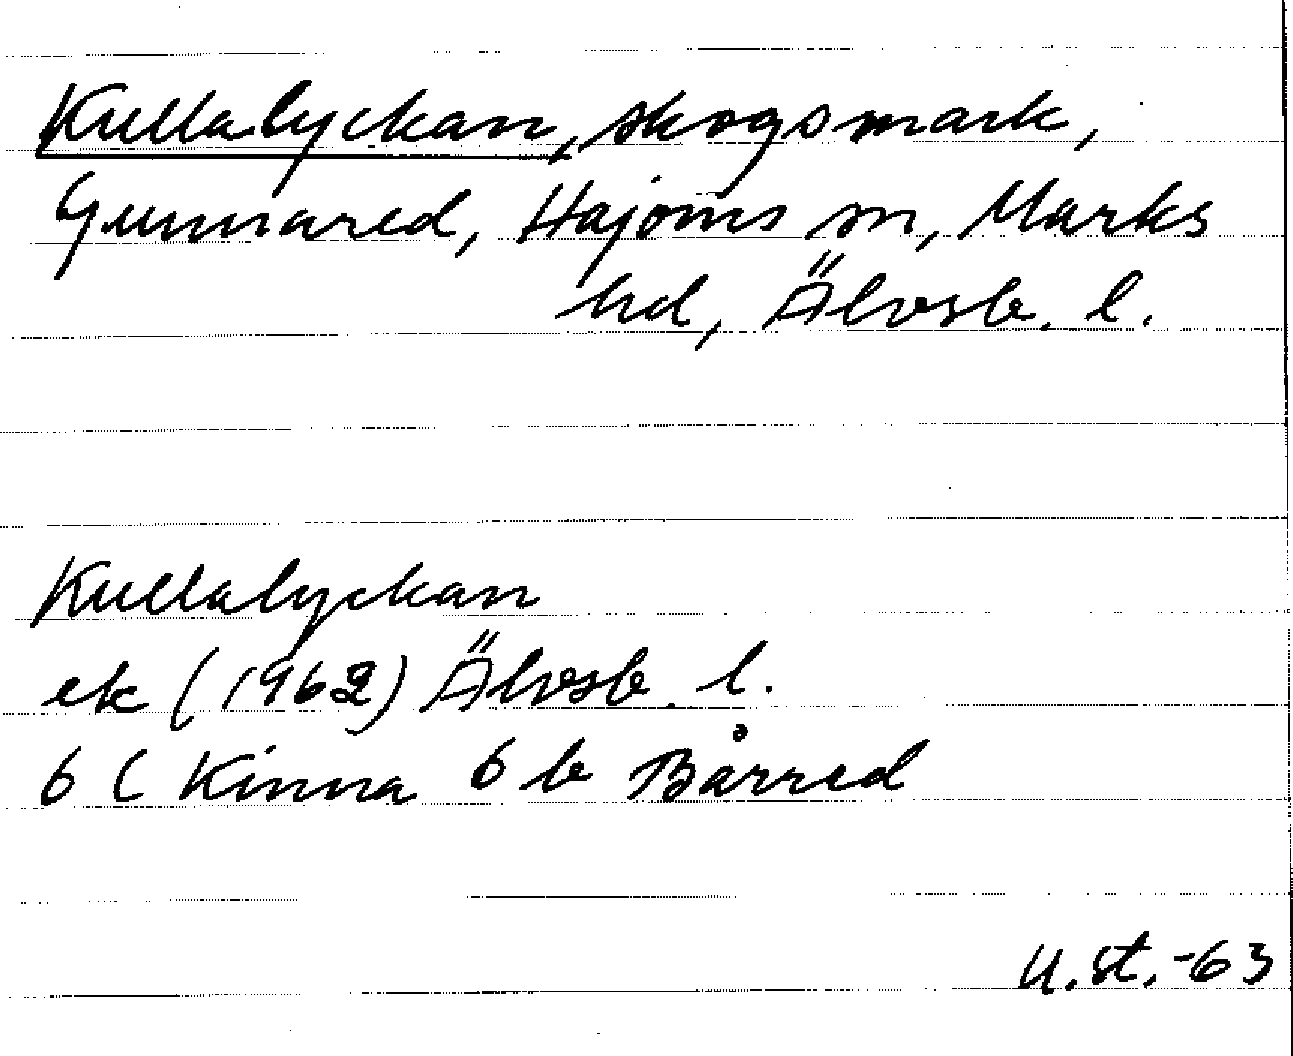 Kullalyckan, skogsmark,
Gunnared, Hajoms sn, Marks
hd, Älvsb. l.
Kullalyckan
ek (1962) Älvsb. l.
6 C Kinna 6 b Bårred
U. St. -63